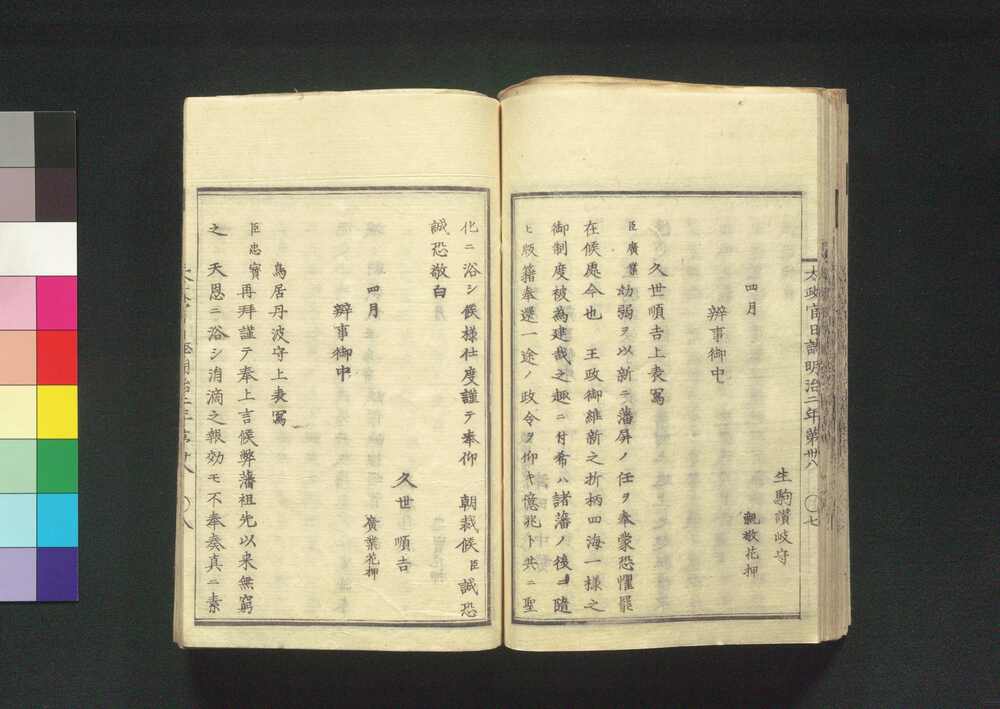 太政官日誌明治二年第卅八
〇七
生駒讃岐守
親敬花押
四月
辨事御中
久世順吉上表寫
臣廣業幼弱ヲ以新ニ藩屏ノ任ヲ奉蒙恐懼罷
在候處今也　王政御維新之折柄四海一様之
御制度被為建哉之趣ニ付希ハ諸藩ノ後ニ隨
ヒ版籍奉還一途ノ政令ヲ仰キ億兆ト共ニ聖
化ニ浴シ候様仕度謹テ奉仰　朝裁候臣誠恐
誠恐敬白
四月
久世順吉
廣業花押
辨事御中
鳥居丹波守上表寫
臣忠寶再拜謹テ奉上言候弊藩祖先以来無窮
之　天恩ニ浴シ涓滴之報効モ不奉奏真ニ素